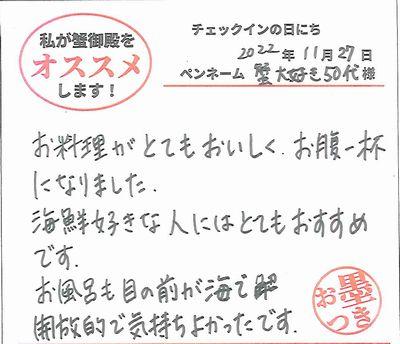 私が蟹御殿を
オススメ
します!
チェックインの日にち
2022年11月27日
ペンネーム 蟹大好き50代様
お料理がとてもおいしく、お腹一杯
になりました.
海鮮好きな人にはとてもおすすめ
です.
お風呂も目の前が海で
開放的で気持ちよかったです.
お墨
つき